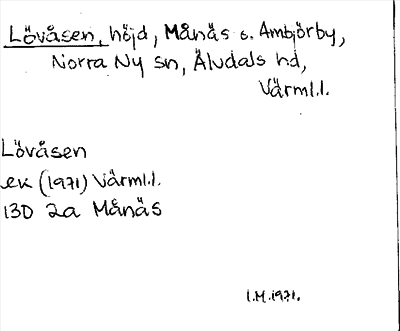 Lövåsen, höjd, Månäs o. Ambjörby,
Norra Ny sn, Älvdals hd,
Värml.l.
Lövåsen
ek (1971) Värml.l.
13D 2a Månäs
I.M.1971.